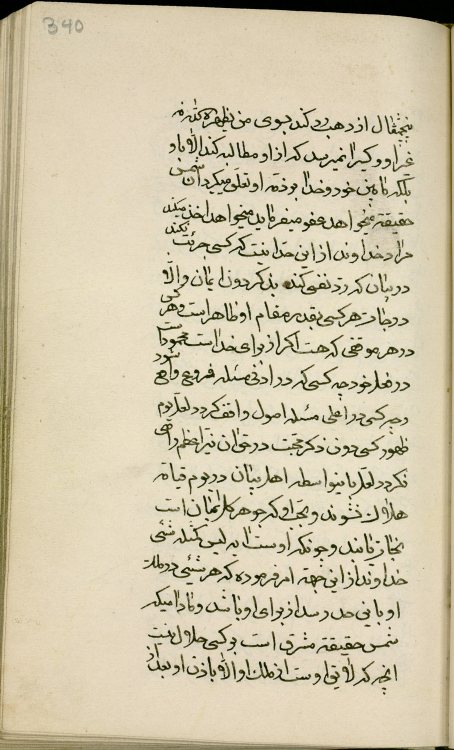 340
مثقال از ذهب رد کند بسوی من یظهره الله نه
غیر او و کیرا نمیرسد که از او مطالبه کند الا باو
بلکه ما بین خود و خدا بوده او تعلق میگیرد ان شمس
حقیقة میخواهد عفو میفرماید میخواهد اخذ میکند
مراد خداوند از این حد این است که کسی جرئت نکند
در بیان که رد نفسی کند بذکر دون ایمان والا
در هر کسی بقدر مقام او ظاهر است و هر کسی
در هر موقفی که هست اگر از برای خدا است محمود است
در فعل خود چه کسی که در ادنی مسئله فروع واقع شود
و چه کسی در اعلی مسئله اصول واقف گردد لعل یوم
ظهور کسی دون ذکر محبت در حق ان نیر اعظم راضی
نگردد لعل باینواسطه اهل بیان در یوم قیامة
هلاک نشوند و بحب او که جوهر کل ایمان است
نجات یابند و چونکه اوست ایه لیس کمثله شئ
خداوند از این جهة امر فرموده که هر شیئی در ملک
او باین حد رسد از برای او باشد و مادامیکه
شمس حقیقة مشرق است بر کسی حلال نیست
انچه که لایق اوست از ملک او الا باذن او و بعد از